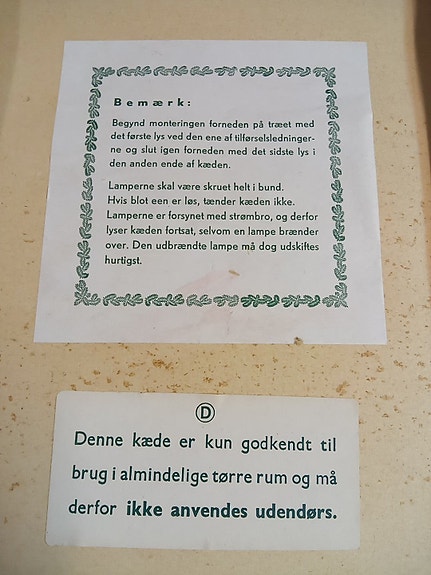 Bemærk:
Begynd monteringen forneden på træet med
det første lys ved den ene af tilførselsledninger-
ne og slut igen forneden med det sidste lys i
den anden ende af kæden.
Lamperne skal være skruet helt i bund.
Hvis blot een er løs, tænder kæden ikke.
Lamperne er forsynet med strømbro, og derfor
lyser kæden fortsat, selvom en lampe brænder
over. Den udbrændte lampe må dog udskiftes
hurtigst.
D
Denne kæde er kun godkendt til
brug i almindelige tørre rum og må
derfor ikke anvendes udendørs.